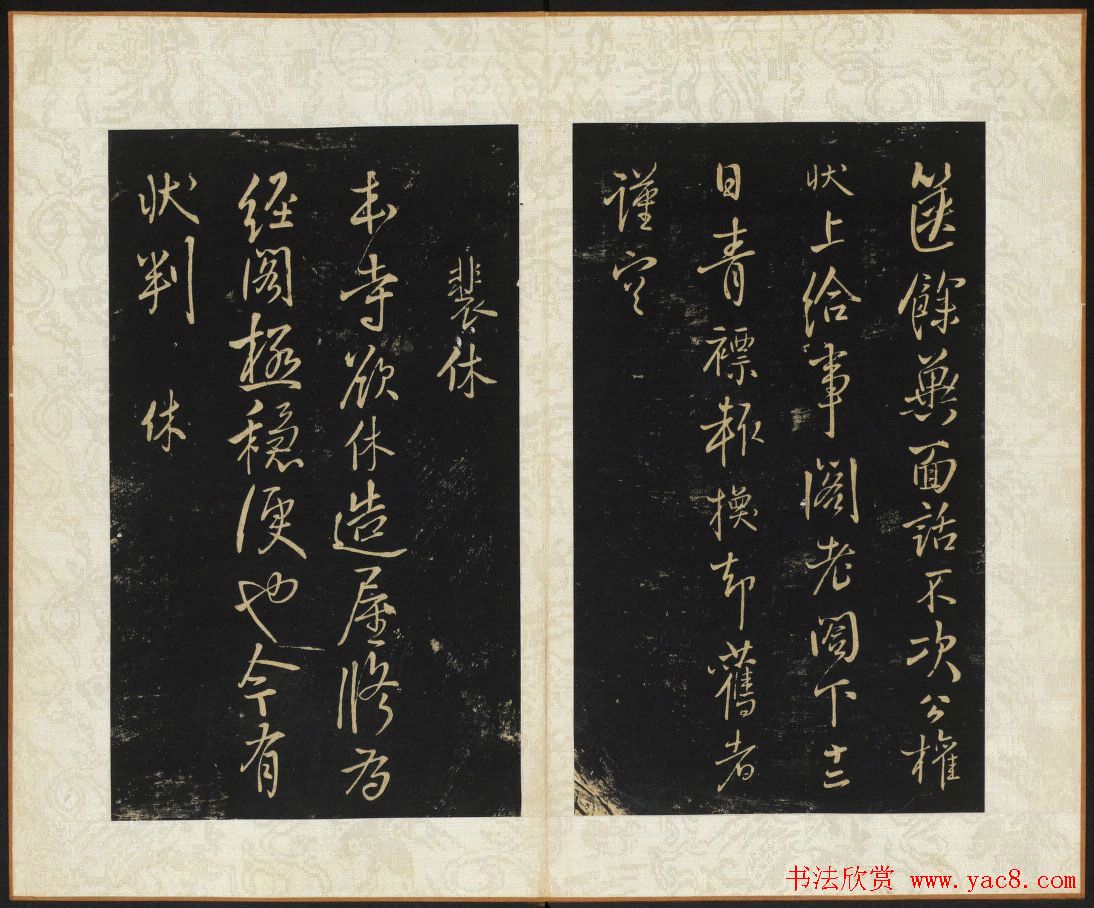 餘冀面話不次公權
狀上給事閣老閤下十二
日青褾輙換却舊者
謹空
裴休
本寺欲休造屋修為
經閣極穩便也今有
狀判 休
书法欣赏 www.yac8.com